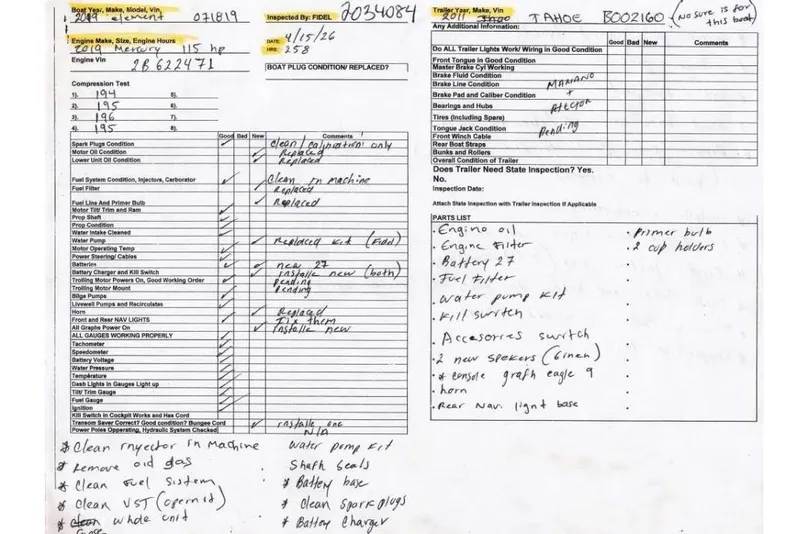 Boat Year, Make, Model, Vin
2019 element 071819
Inspected By: FIDEL
2034084
Engine Make, Size, Engine Hours
2019 Mercury 115 hp
DATE: 4/15/26
HRS: 258
Engine Vin
2B 622471
BOAT PLUG CONDITION/ REPLACED?
Compression Test
1). 194 5).
2). 195 6).
3). 196 7).
4). 195 8).
Good Bad New Comments
Spark Plugs Condition Clean / calibration only
Motor Oil Condition Replaced
Lower Unit Oil Condition Replaced
Fuel System Condition, Injectors, Carborator Clean in machine
Fuel Filter Replaced
Fuel Line And Primer Bulb Replaced
Motor Tilt/ Trim and Ram
Prop Shaft
Prop Condition
Water Intake Cleaned
Water Pump Replaced Kit (Fidel)
Motor Operating Temp
Power Steering/ Cables
Batteries new 27
Battery Charger and Kill Switch installe new (both)
Trolling Motor Powers On, Good Working Order Pending
Trolling Motor Mount Pending
Bilge Pumps
Livewell Pumps and Recirculates
Horn Replaced
Front and Rear NAV LIGHTS Fix them
All Graphs Power On Installe new
ALL GAUGES WORKING PROPERLY
Tachometer
Speedometer
Battery Voltage
Water Pressure
Temperature
Dash Lights in Gauges Light up
Tilt/ Trim Gauge
Fuel Gauge
Ignition
Kill Switch in Cockpit Works and Has Cord
Transom Saver Correct? Good condition? Bungee Cord installe one
Power Poles Opperating, Hydraulic System Checked N/A
* Clean inyector in Machine
* Remove old gas
* Clean Fuel System
* Clean VST (open it)
* whole unit
Water pump Kit
Shaft Seals
* Battery base
* Clean Spark plugs
* Battery Charger
Trailer Year, Make, Vin
2011 TAHOE B002160 (No sure is for this boat)
Any Additional Information:
Good Bad New Comments
Do ALL Trailer Lights Work/ Wiring in Good Condition
Front Tongue in Good Condition
Master Brake Cyl Working
Brake Fluid Condition
Brake Line Condition MARIANO
Brake Pad and Caliber Condition +
Bearings and Hubs HECTOR
Tires (Including Spare)
Tongue Jack Condition Pending
Front Winch Cable
Rear Boat Straps
Bunks and Rollers
Overall Condition of Trailer
Does Trailer Need State Inspection? Yes.
No.
Inspection Date:
Attach State Inspection with Trailer Inspection If Applicable
PARTS LIST
· Engino oil
· Engine Filter
· Battery 27
· Fuel Filter
· Water pump Kit
· Kill switch
· Accesories switch
· 2 new spekers (6 inch)
· * console graph eagle 9
· horn
· Rear Nav. light base
· Primer bulb
· 2 cup holders